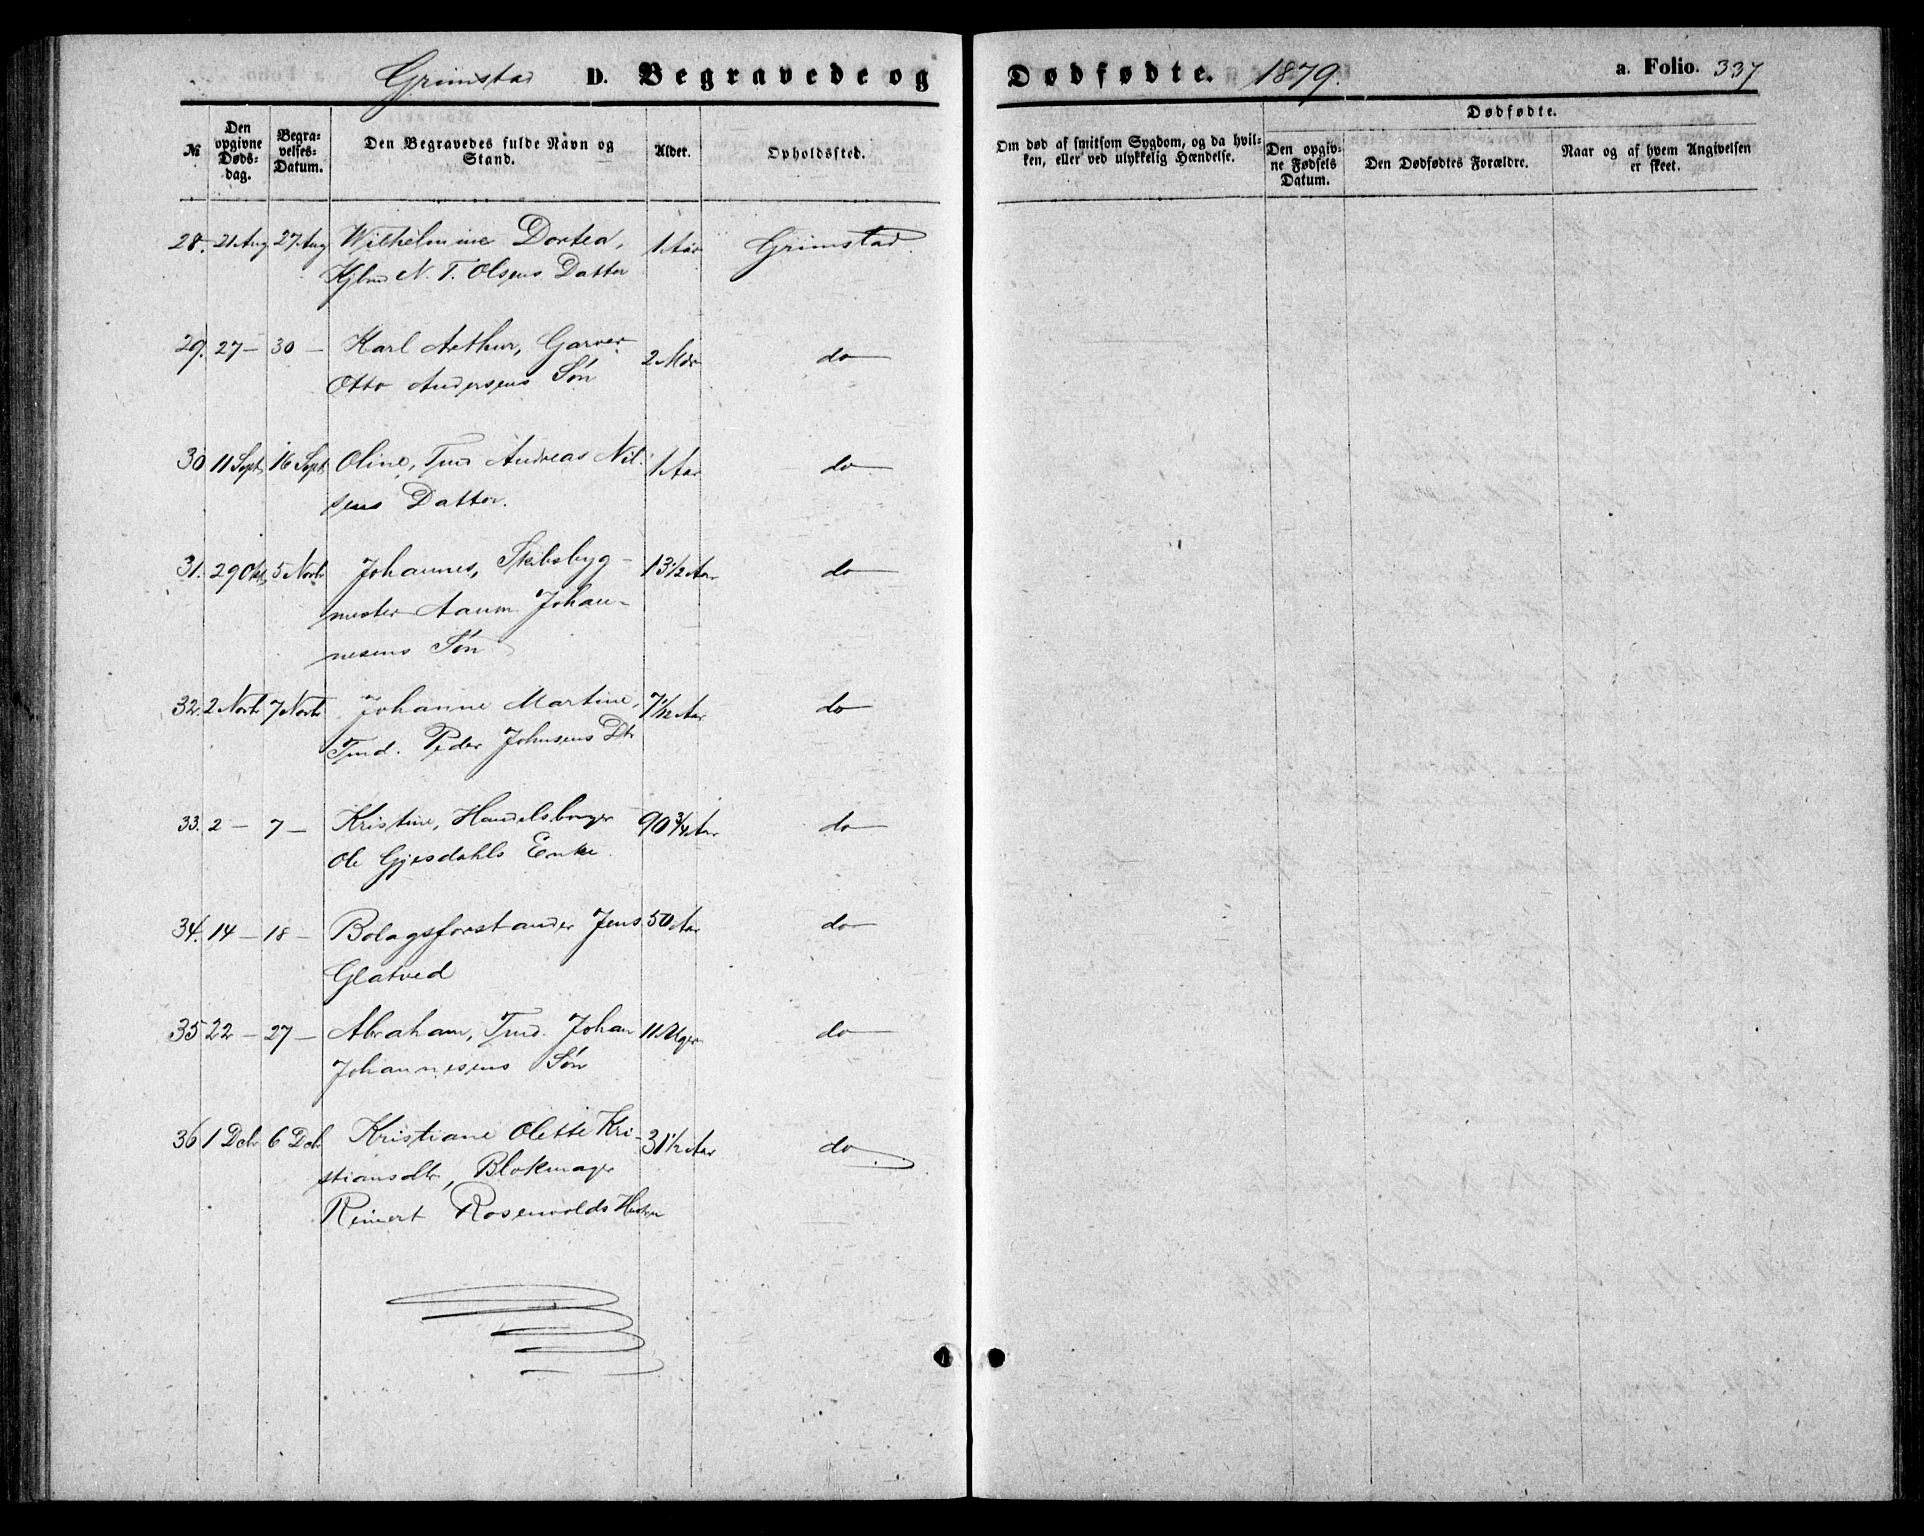 Grimstad D. Begravede og Dødfødte. 1879. a. Folio. 337
№
Den opgivne Døds-dag.
Begra-velses-Datum.
Den Begravedes fulde Navn og Stand.
Alder.
Opholdssted.
Om død af smitsom Sygdom, og da hvil-
ken, eller ved ulykkelig Hændelse.
Dødfødte.
Den opgiv-
ne Fødsels
Datum.
Den Dødfødtes Forældre.
Naar og af hvem Angivelsen
er skeet.
28. 21 Aug 27 Aug Wilhelmine Dortea, 1 Aar Grimstad.
N. T. Olsens Datter
29. 27 — 30 — Karl Arthur, Garver 2 Mdr do
Otto Andersens Søn
30 11 Sept 16 Sept Oline, Tmd Andreas Nil- 1 Aar do
sens Datter.
31. 29 Okt 5 Novb Johannes, Skibsbyg- 13 1/2 Aar do
mester Aanon Johan-
nesens Søn
32. 2 Novb 7 Novb Johanne Martine, 7 1/2 Aar do
Tmd. Peder Johnsens Dtr
33. 2 — 7 — Kristine, Handelsborger 90 3/4 Aar do
Ole Gjesdahls Enke.
34. 14 — 18 — Bolagsforstander Jens 50 Aar do
Glatved
35 22 — 27 — Abraham, Tmd. Johan 11 Uger do
Johannesens Søn
36 1 Dcb 6 Dcb Kristiane Olette Kri- 31 1/2 Aar do
stiansdtr, Blokmager
Reinert Rosenvolds Hustru